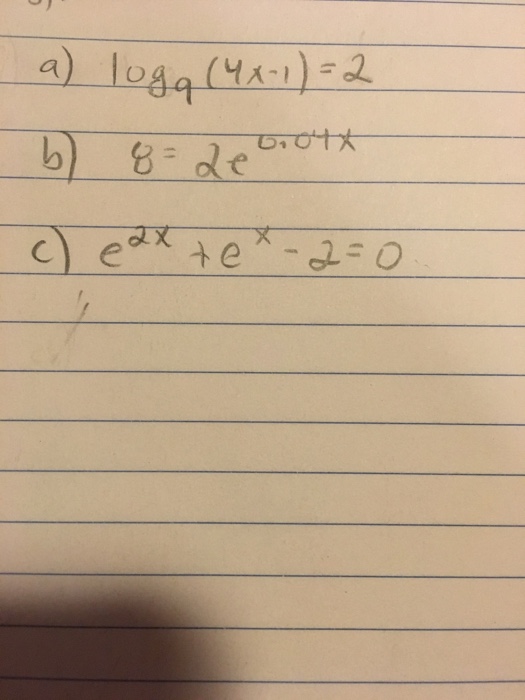 a) log₉(4x-1)=2
b) 8=2e^0.04x
c) e^2x+e^x-2=0